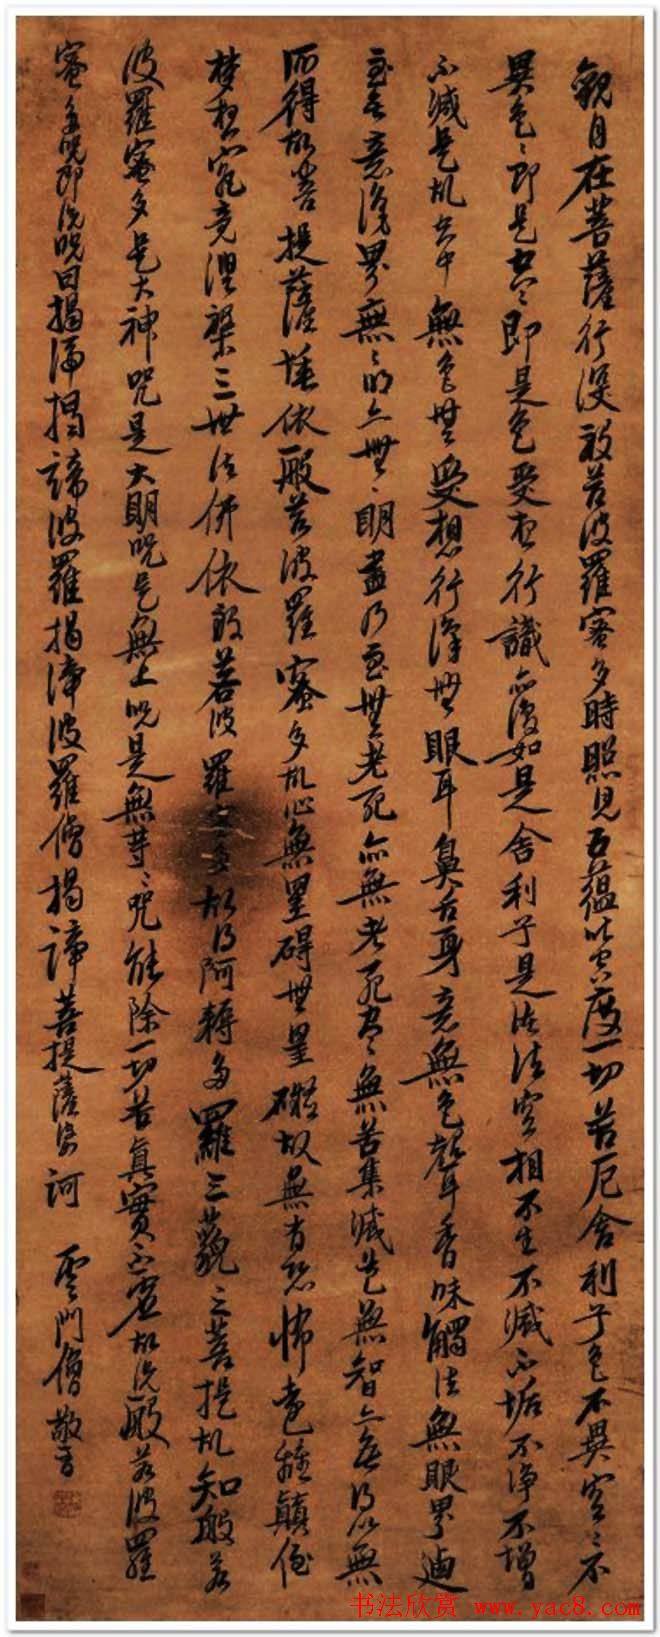 觀自在菩薩行深般若波羅蜜多時照見五蘊皆空度一切苦厄舍利子色不異空〻不
異色〻即是空〻即是色受想行識亦復如是舍利子是諸法空相不生不滅不垢不淨不增
不減是故空中無色無受想行識無眼耳鼻舌身意無色聲香味觸法無眼界迺
至無意識界無〻明亦無〻明盡乃至無老死亦無老死盡〻無苦集滅道無智亦無得以無
所得故菩提薩埵依般若波羅蜜多故心無罣碍無罣礙故無有恐怖遠離顛倒
夢想究竟涅槃三世諸佛依般若波羅蜜多故得阿耨多羅三藐三菩提故知般若
波羅蜜多是大神咒是大明咒是無上咒是無等〻咒能除一切苦真實不虛故說般若波羅
蜜多咒即說咒曰揭諦揭諦波羅揭諦波羅僧揭諦菩提薩婆訶 雲門僧敬書
书法欣赏 www.yac8.com